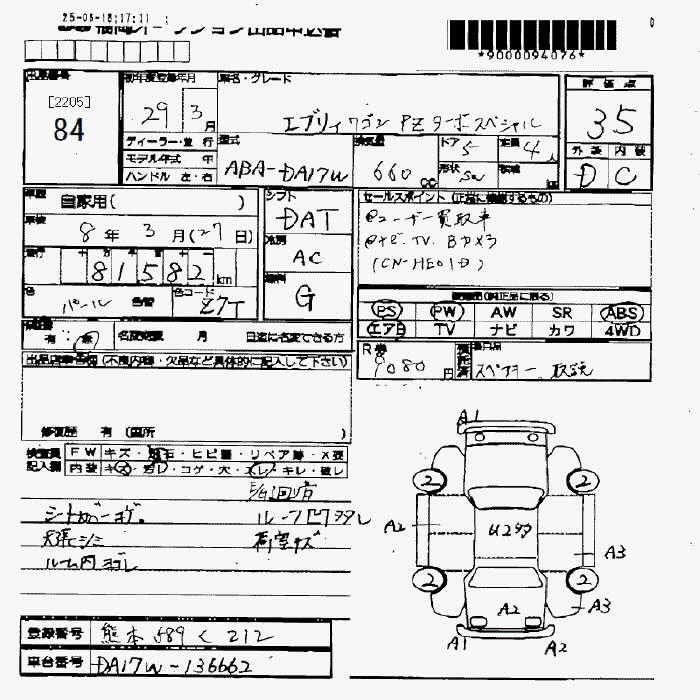 25-06-18;17:11
*9000094076*
出品番号
[2205]
84
初年度登録年月
29年3月
車名・グレード
エブリィワゴン PZターボスペシャル
評価点
3.5
外装 内装
D C
ディーラー・並行
モデル年式 年
ハンドル 左・右
型式
ABA-DA17W
排気量
660 cc
ドア
5
形状
SW
定員
4人
積載
車歴
自家用( )
車検
8年3月(27日)
走行
81582km
色
パール
色替
色コード
Z7T
シフト
DAT
冷房
AC
燃料
G
セールスポイント(正常に機能するもの)
ユーザー買取車
ナビ.TV.Bカメラ
(CN-HE01D)
装備品(純正品に限る)
PS PW AW SR ABS
エアB TV ナビ カワ 4WD
R券
9080円
スペアキー、取説
有・無
名変期限 月 日迄に名変できる方
出品店申告欄(不良内容・欠品など具体的に記入して下さい)
修復歴 有(箇所 )
検査員記入欄
FW キズ・飛石・ヒビ・リペア跡・X要
内装 キズ・汚レ・コゲ・穴・スレ・キレ・破レ
シートカバーヨゴ。
ルーフ凹タタレ
天張シミ
荷室キズ
ルーム内ヨゴレ
A1
2 2
A2 U2タタ A3
2 2
A2 A3
A1 A2
登録番号 熊本 589 く 212
車台番号 DA17W-136662